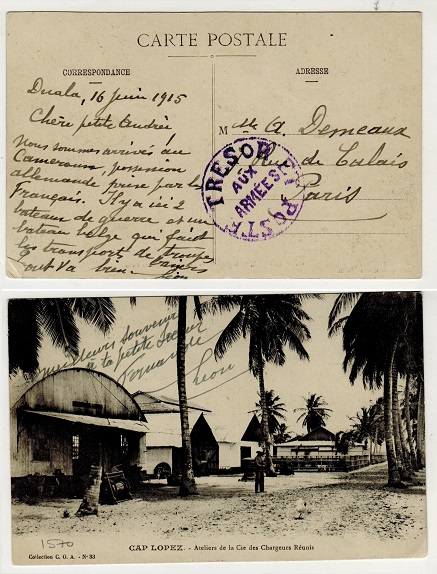 CARTE POSTALE
CORRESPONDANCE
ADRESSE
Duala, 16 juin 1915
Chère petite Andrée
Nous sommes arrivés au
Cameroun, possession
allemande prise par les
français. Il y a ici 2
bateaux de guerre et un
bateau belge qui fait
les transports de troupes
Tout va bien baisers
Léon
Mlle A. Demeaux
Rue de Calais
Paris
TRESOR ET POSTES
AUX
ARMEES
meilleurs souvenirs
à ta petite soeur
Fernande
Léon
1570
CAP LOPEZ. - Ateliers de la Cie des Chargeurs Réunis
Collection C. G. A. - N° 33